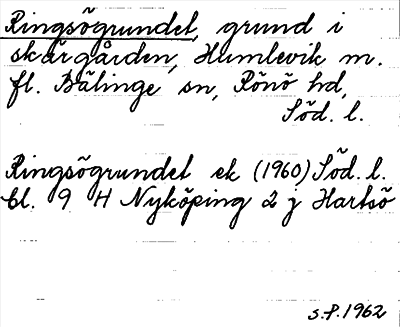 Ringsögrundet, grund i
skärgården, Humlevik m.
fl. Bälinge sn, Rönö hd,
Söd. l.
Ringsögrundet ek (1960) Söd. l.
bl. 9 H Nyköping 2 j Hartsö
S.P. 1962